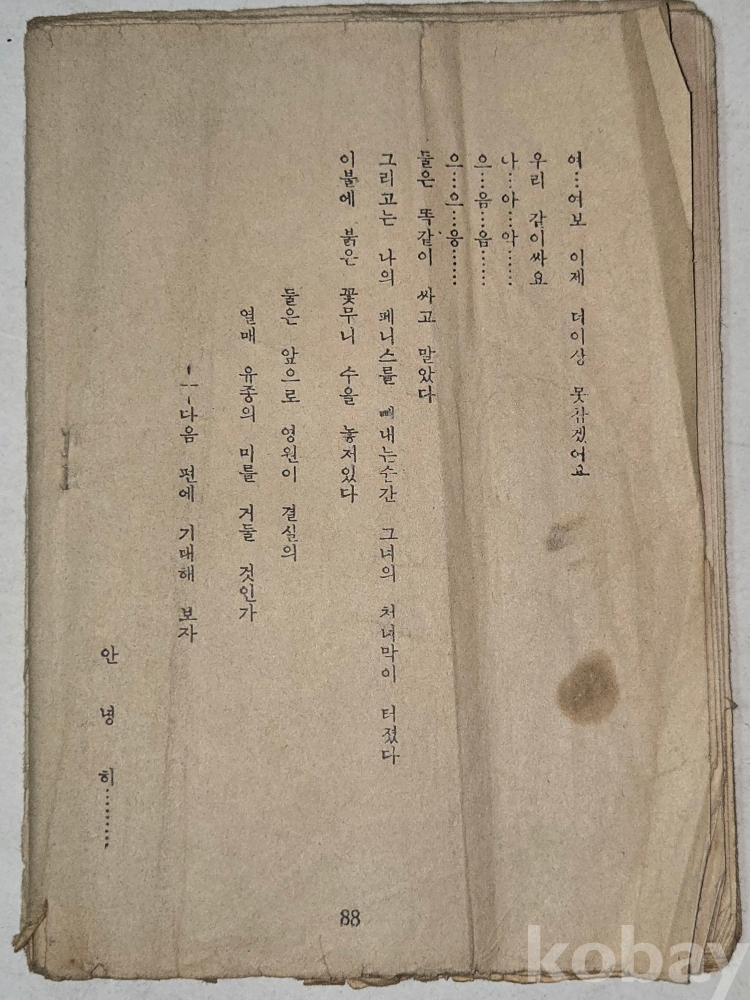 여…여보 이제 더이상 못참겠어요
우리 같이싸요
나…아…악……
으…음…음……
으…으…응……
둘은 똑같이 싸고 말았다
그리고는 나의 페니스를 빼내는순간 그녀의 처녀막이 터졌다
이불에 붉은 꽃무니 수을 놓저있다
둘은 앞으로 영원이 결실의
열매 유종의 미를 거둘 것인가
---다음 편에 기대해 보자
안녕히………
88
kobay